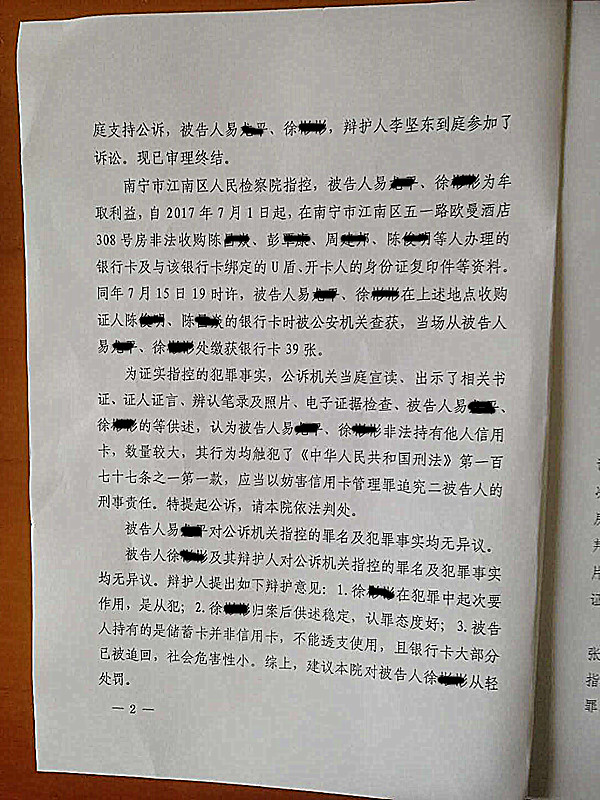 庭支持公诉，被告人易平、徐，辩护人李坚东到庭参加了
诉讼。现已审理终结。
南宁市江南区人民检察院指控，被告人易、徐为牟
取利益，自2017年7月1日起，在南宁市江南区五一路欧曼酒店
308号房非法收购陈、彭、周、陈等人办理的
银行卡及与该银行卡绑定的U盾、开卡人的身份证复印件等资料。
同年7月15日19时许，被告人易、徐在上述地点收购
证人陈、陈的银行卡时被公安机关查获，当场从被告人
易、徐处缴获银行卡39张。
为证实指控的犯罪事实，公诉机关当庭宣读、出示了相关书
证、证人证言、辨认笔录及照片、电子证据检查、被告人易、
徐的等供述，认为被告人易、徐非法持有他人信用
卡，数量较大，其行为均触犯了《中华人民共和国刑法》第一百
七十七条之一第一款，应当以妨害信用卡管理罪追究二被告人的
刑事责任。特提起公诉，请本院依法判处。
被告人易对公诉机关指控的罪名及犯罪事实均无异议。
被告人徐及其辩护人对公诉机关指控的罪名及犯罪事实
均无异议。辩护人提出如下辩护意见：1.徐在犯罪中起次要
作用，是从犯；2.徐归案后供述稳定，认罪态度好；3.被告
人持有的是储蓄卡并非信用卡，不能透支使用，且银行卡大部分
已被追回，社会危害性小。综上，建议本院对被告人徐从轻
处罚。
— 2 —
证
张
指
罪